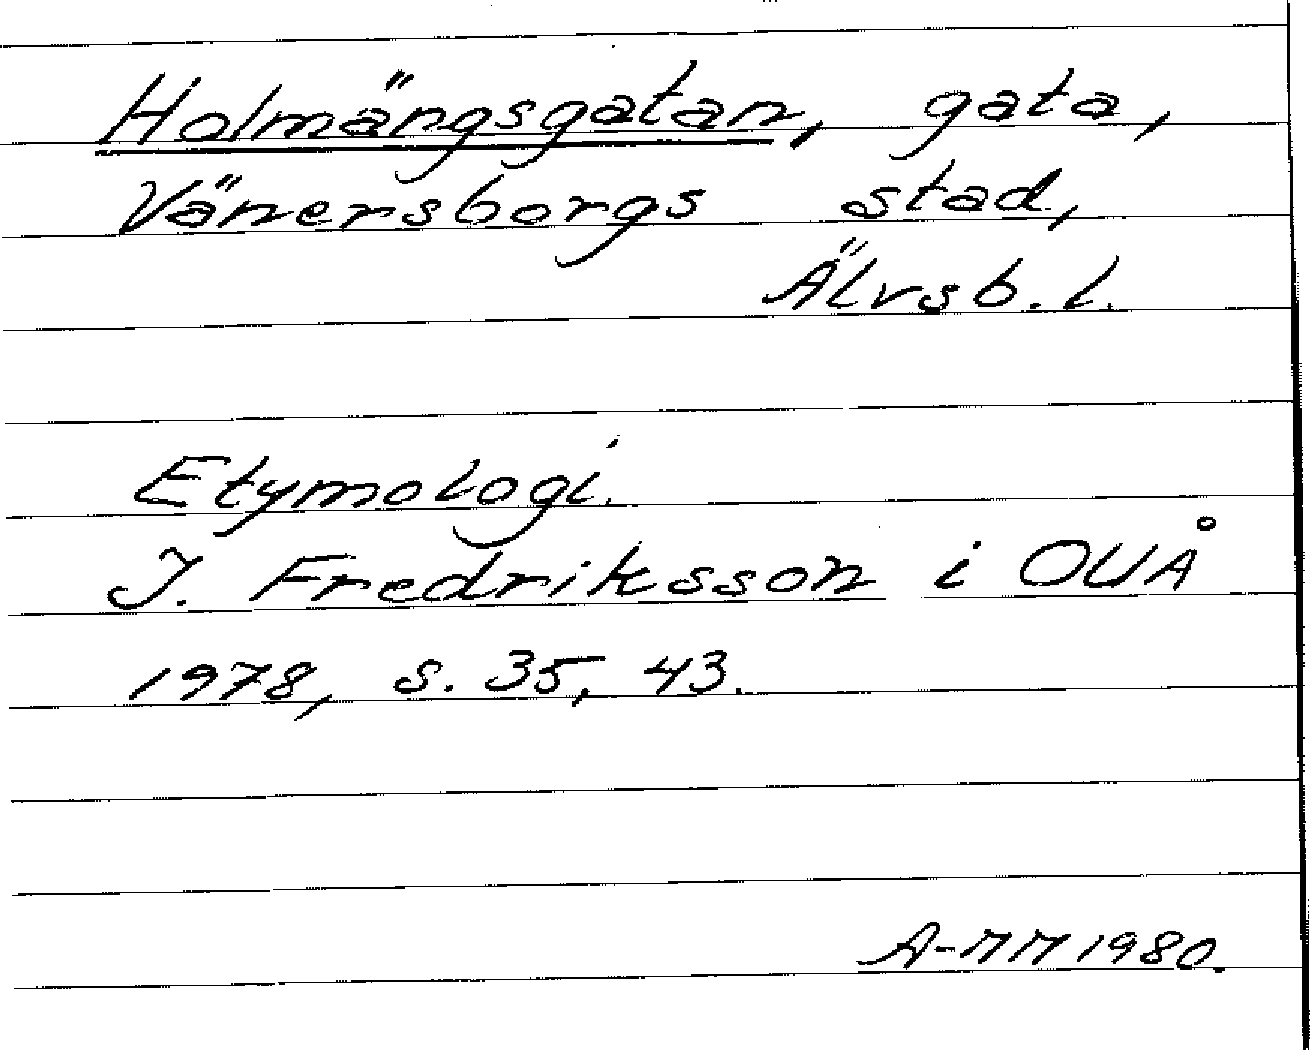 Holmängsgatan, gata,
Vänersborgs stad,
Älvsb. l.
Etymologi.
I. Fredriksson i OUÅ
1978, s. 35, 43.
A-MM 1980.